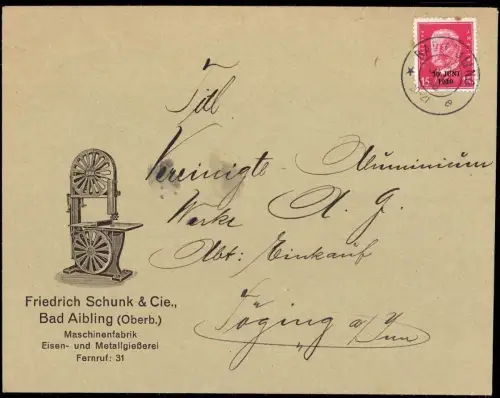 30. JUNI
1930
15 15
Titl.
Vereinigte Aluminium
Werke A. G.
Abt: Einkauf
Töging a/Inn
Friedrich Schunk & Cie.,
Bad Aibling (Oberb.)
Maschinenfabrik
Eisen- und Metallgießerei
Fernruf: 31